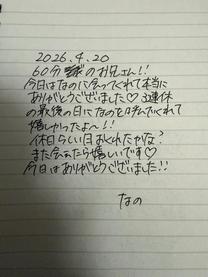 2026.4.20
60分のお兄さん!!
今日はなのに会ってくれて本当に
ありがとうございました♡ 3連休
の最後の日になのを呼んでくれて
嬉しかったよ〜!!
休日らしい日おくれたかな?
また会えたら嬉しいです♡
今日はありがとうございました!!
なの